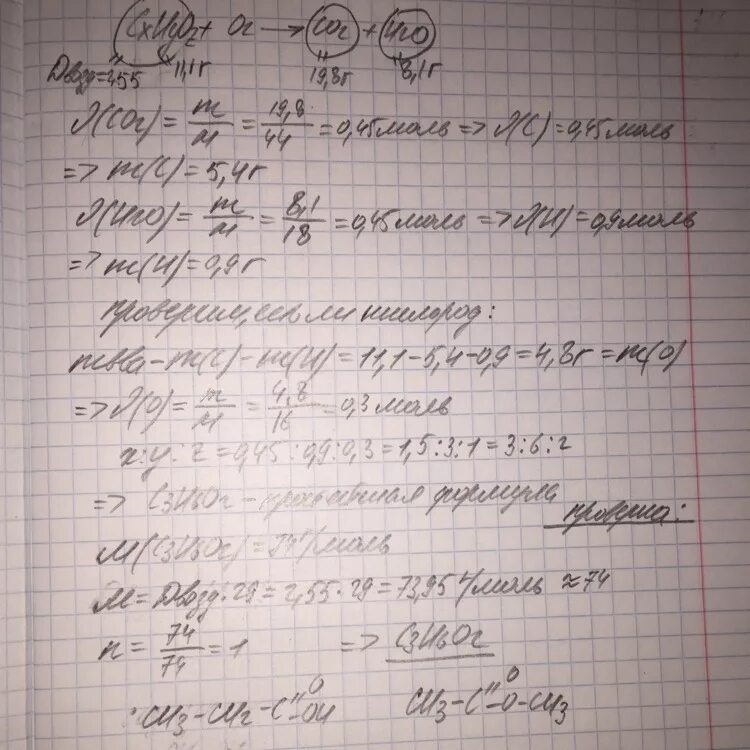 CxHyOz + O2 → CO2 + H2O
Dвозд=2,55 11,1г 19,8г 8,1г
λ(CO2) = m/M = 19,8/44 = 0,45моль => λ(C) = 0,45моль
=> m(C) = 5,4г
λ(H2O) = m/M = 8,1/18 = 0,45моль => λ(H) = 0,9моль
=> m(H) = 0,9г
проверим, есть ли кислород:
mв-ва - m(C) - m(H) = 11,1 - 5,4 - 0,9 = 4,8г = m(O)
=> λ(O) = m/M = 4,8/16 = 0,3моль
x:y:z = 0,45:0,9:0,3 = 1,5:3:1 = 3:6:2
=> C3H6O2 - простейшая формула
проверка:
M(C3H6O2) = 74г/моль
M = Dвозд·29 = 2,55·29 = 73,95г/моль ≈ 74
n = 74/74 = 1 => C3H6O2
CH3-CH2-C(=O)-OH CH3-C(=O)-O-CH3